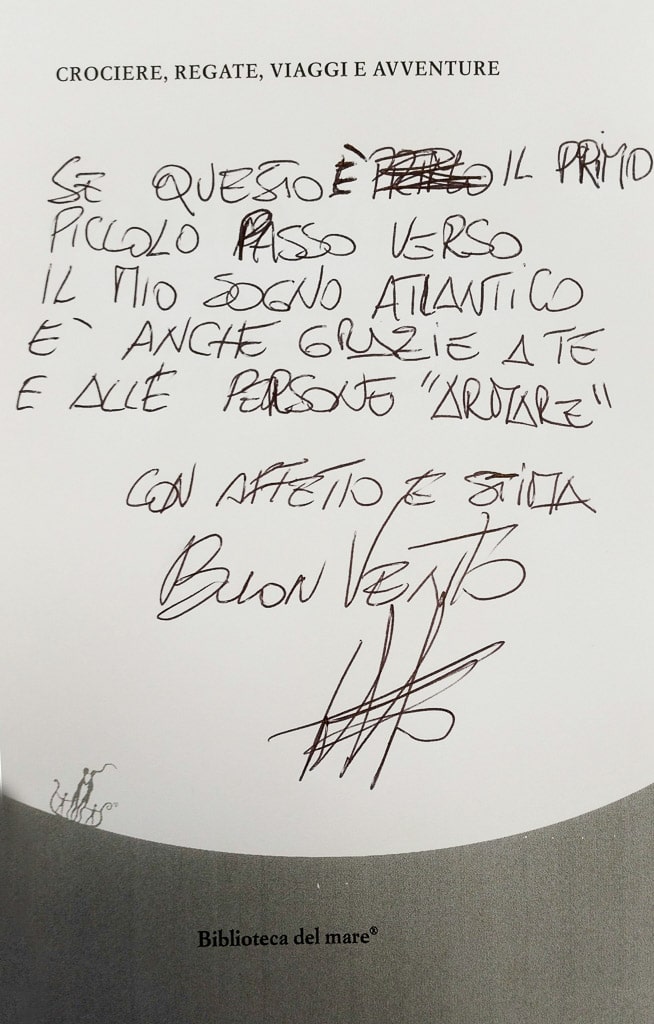 CROCIERE, REGATE, VIAGGI E AVVENTURE
SE QUESTO È IL PRIMO
PICCOLO PASSO VERSO
IL MIO SOGNO ATLANTICO
E' ANCHE GRAZIE A TE
E ALLE PERSONE "ARMARE"
CON AFFETTO E STIMA
BUON VENTO
Biblioteca del mare®